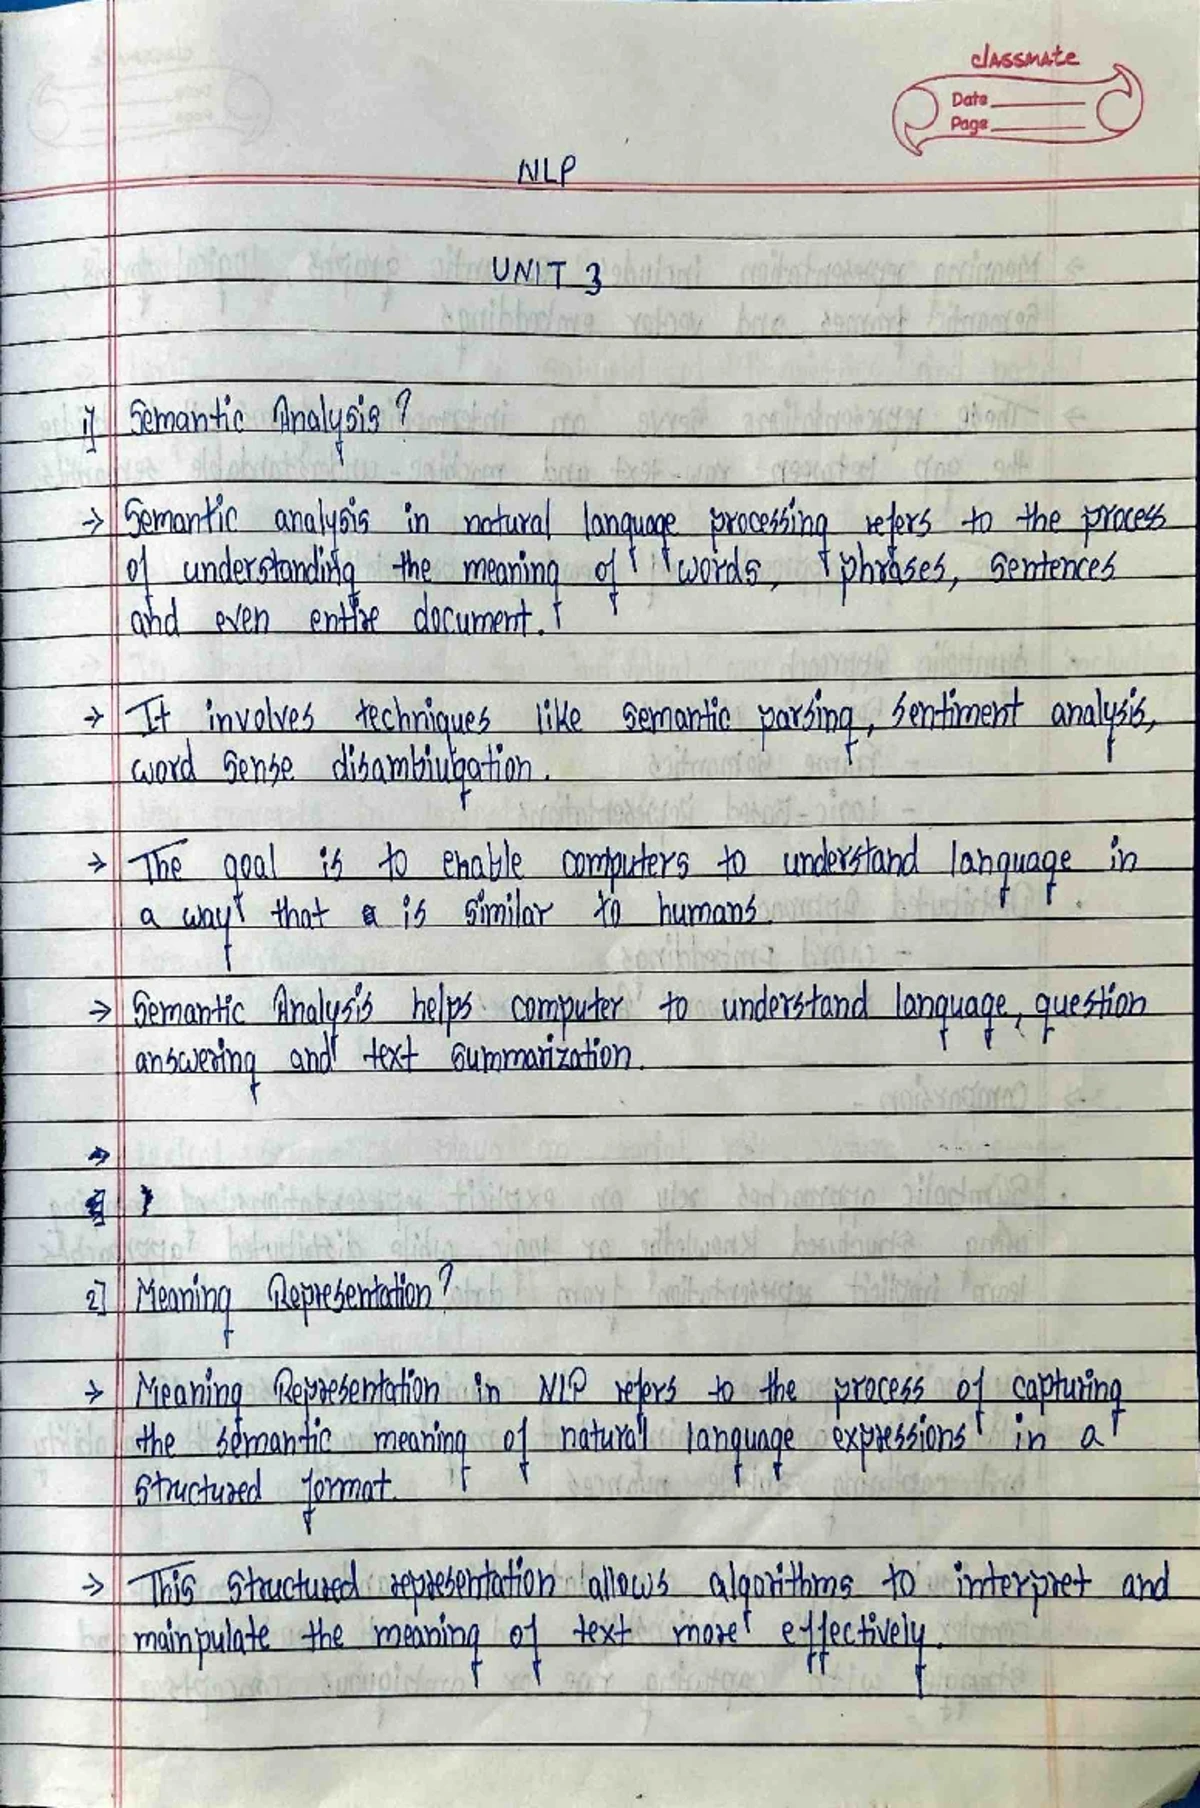 classmate
Date
Page
NLP
UNIT 3
1] Semantic Analysis?
→ Semantic analysis in natural language processing refers to the process
of understanding the meaning of words, phrases, sentences
and even entire document.
→ It involves techniques like semantic parsing, sentiment analysis,
word sense disambiugation.
→ The goal is to enable computers to understand language in
a way that is similar to humans.
→ Semantic Analysis helps computer to understand language, question
answering and text summarization.
→
2] Meaning Representation?
→ Meaning Representation in NLP refers to the process of capturing
the semantic meaning of natural language expressions in a
structured format.
→ This structured representation allows algorithms to interpret and
mainpulate the meaning of text more effectively.